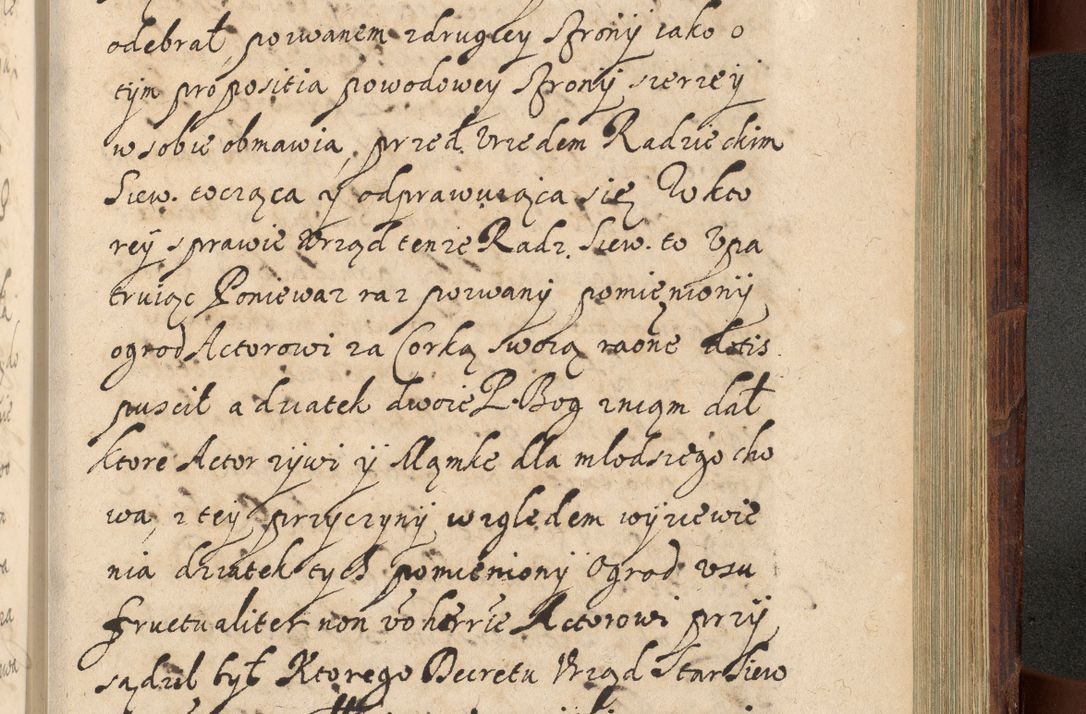 odebrał, pozwanem zdrugiey Strony iako o
tym propositia powodowey Strony szerzey
w sobie obmawia, przed Vrzędem Radzieckim
Siew. tocząca y odprawuiąca się W kto
rey sprawie Wrząd tenze Radz. Siew. to Vpa
truiąc Poniewaz raz pozwany pomięniony
ogrod Actorowi za Corką swoią
puscił a dziatek dwoie P. Bog znięm dał
ktore Actor zywi y Mąmke dla młodszego cho
wa, z tey przyczyny względem wyzewie
nia dziatek tych pomieniony Ogrod vsu
fructualiter non vo Actorowi przy
sądził był Ktorego Decretu Vrząd Star Siew